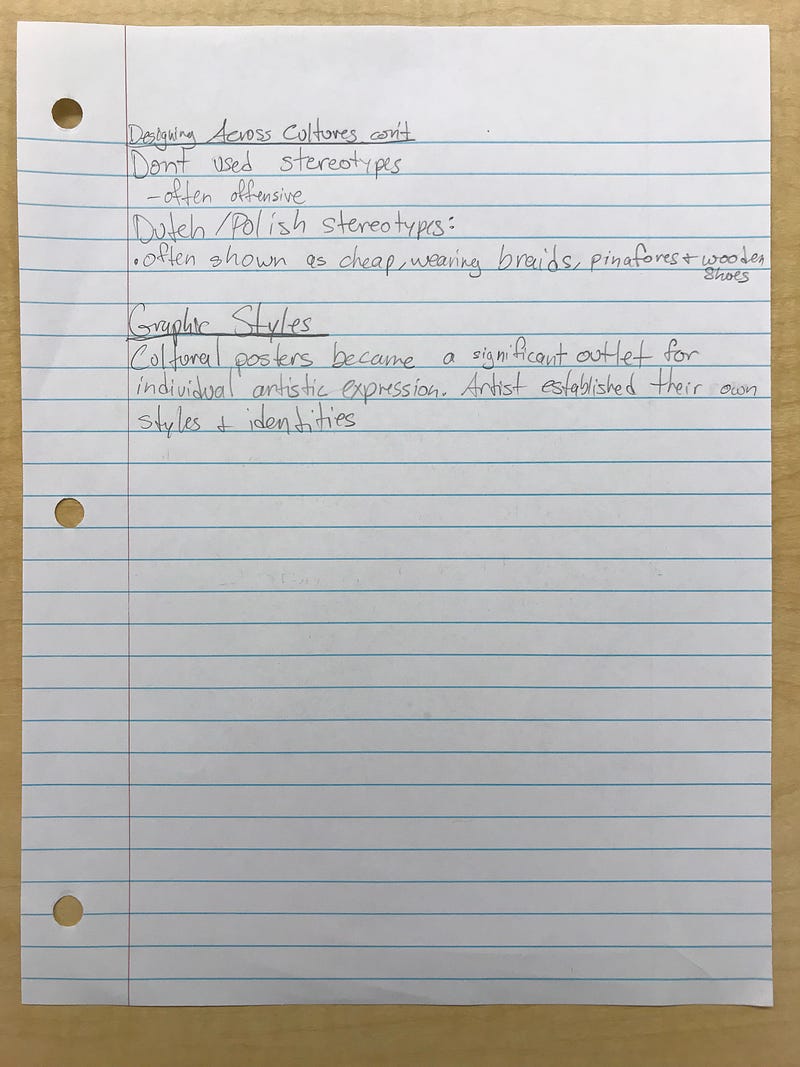 Designing Across Cultures con't
Dont used stereotypes
- often offensive
Dutch/Polish stereotypes:
• often shown as cheap, wearing braids, pinafores + wooden
shoes
Graphic Styles
Cultural posters became a significant outlet for
individual artistic expression. Artist established their own
styles + identities